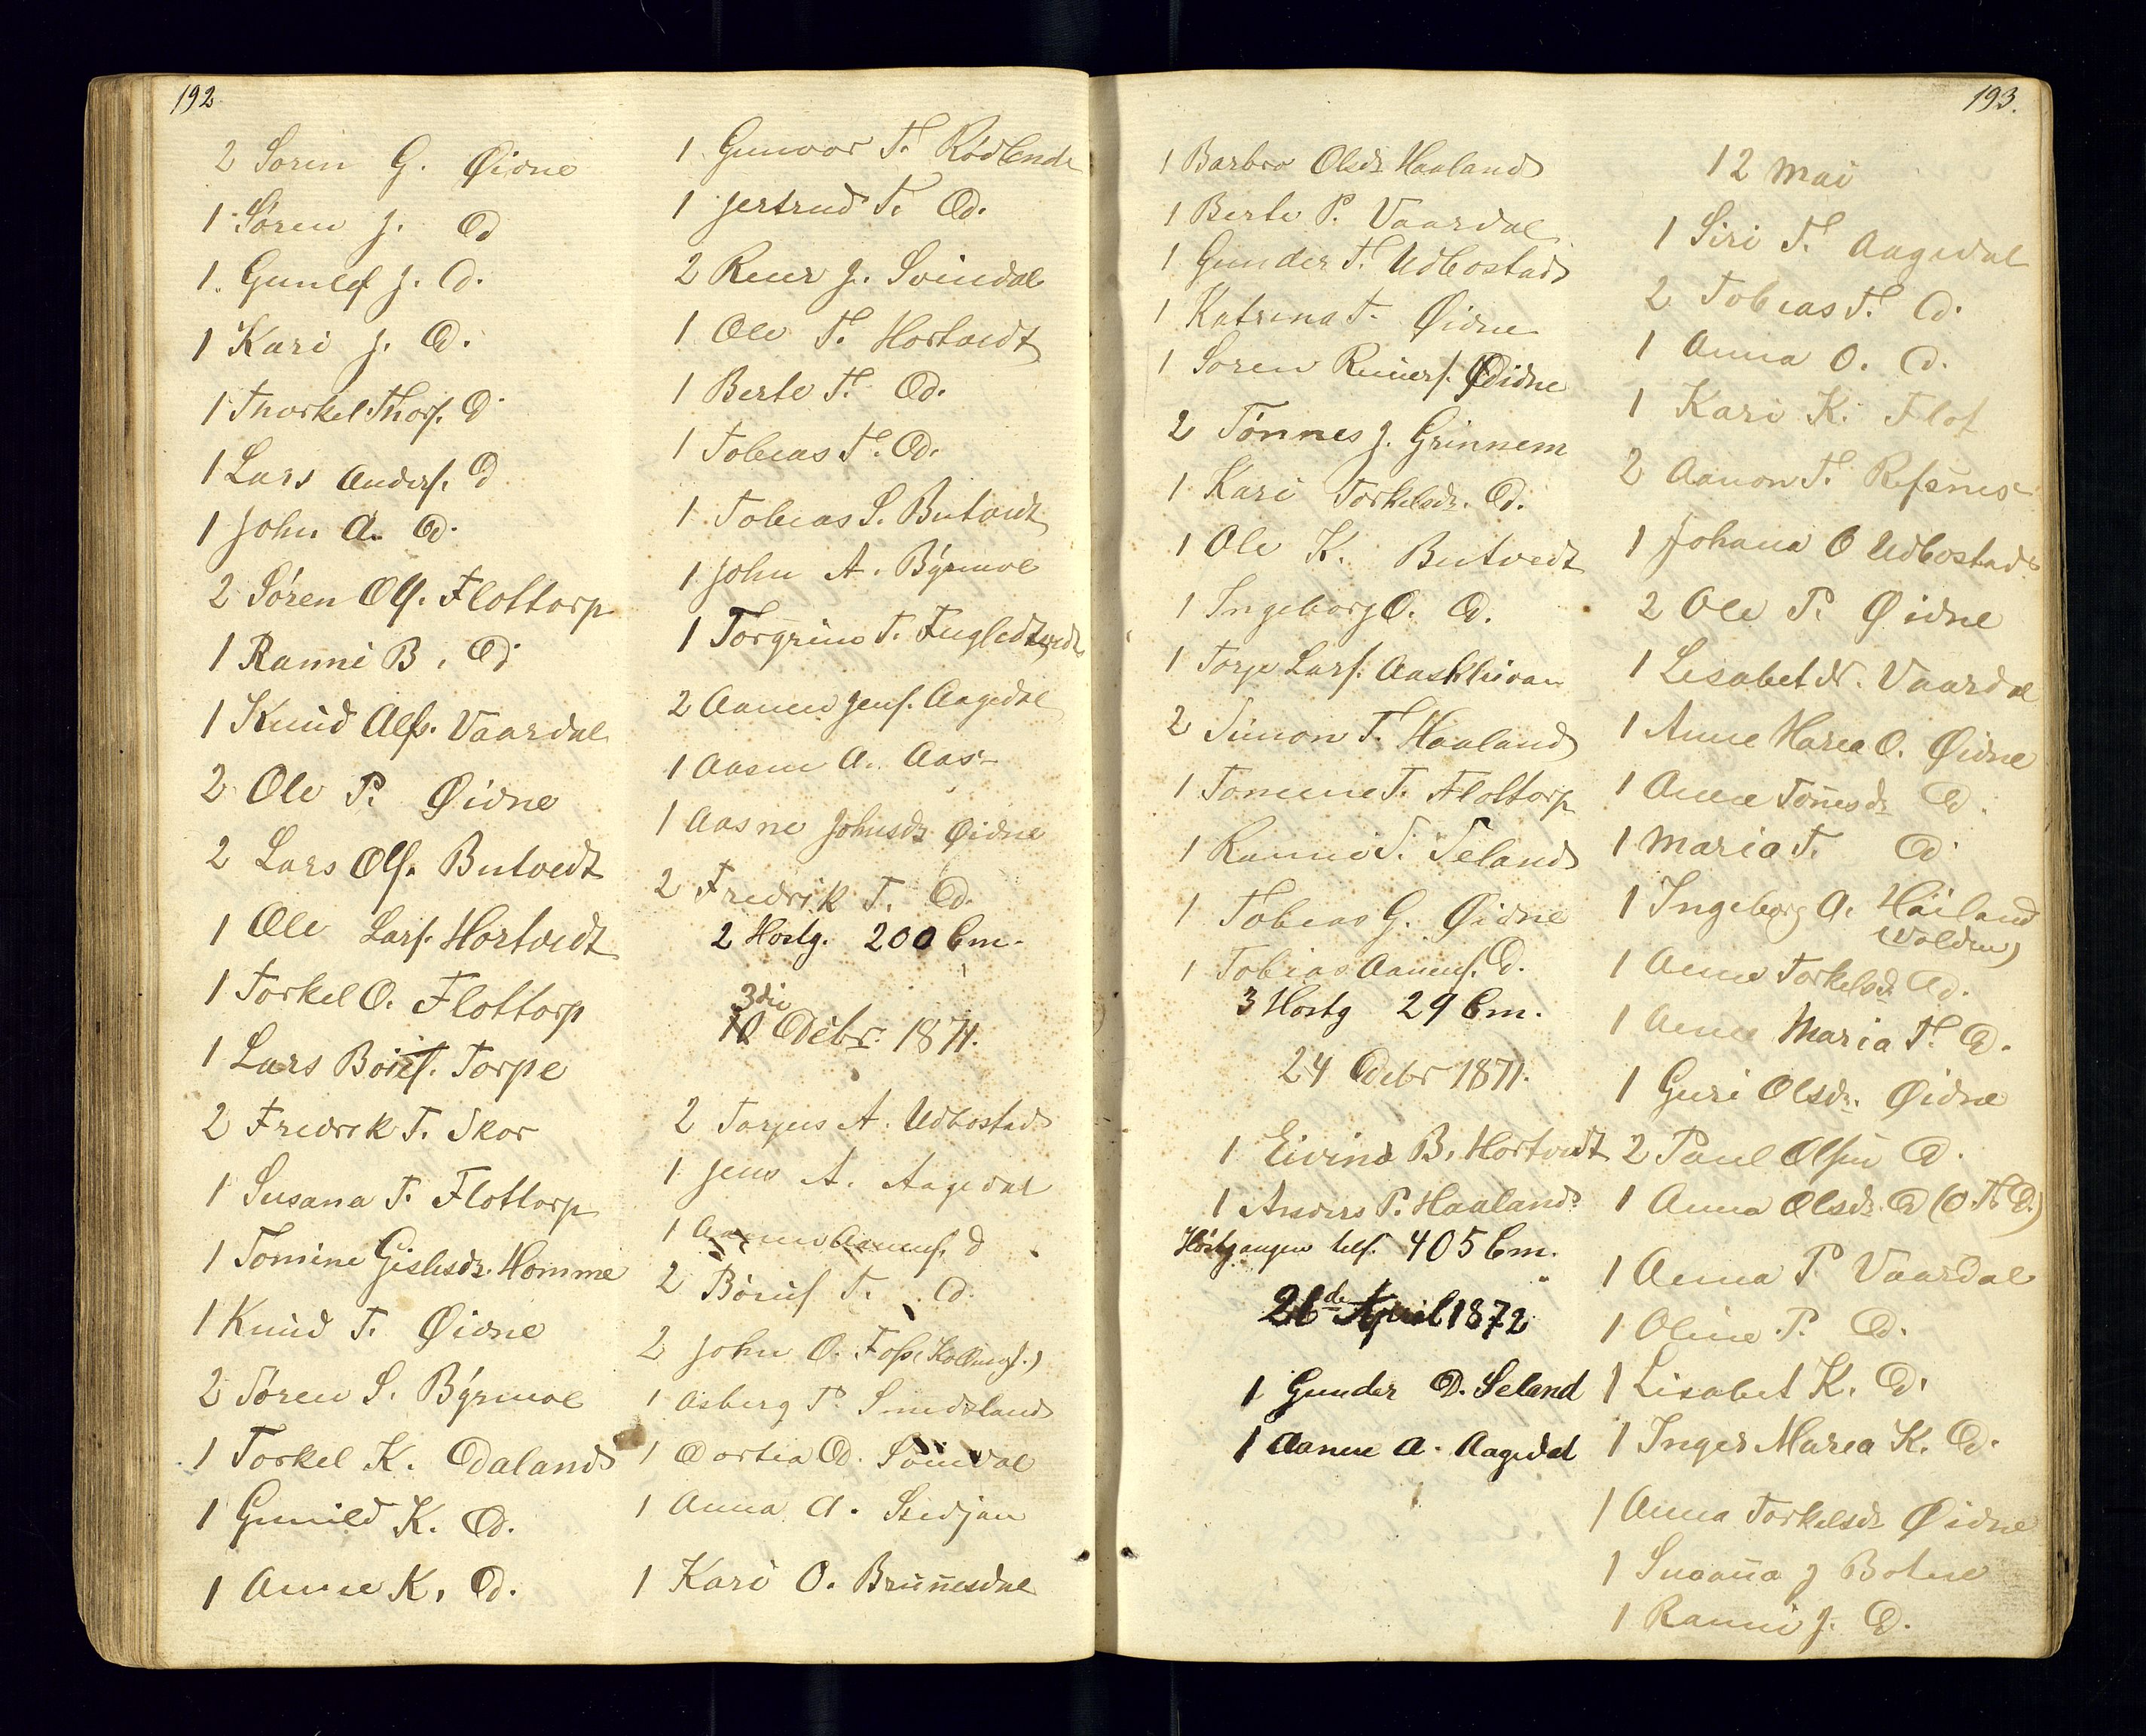 192
2 Soren G. Øidne
1 Søren J. Od
1. Gunlef J. Od.
1 Kari J. Od.
1 Thorkel Thors. Od
1 Lars Anders. Od
1 John A. Od.
2 Søren Ols. Flottorp
1 Ranni B. Od
1 Knud Alfs. Vaardal
2 Ole P. Øidne
2 Lars Ols. Butvedt
1 Ole Lars. Hortvedt
1 Torkel O. Flottorp
1 Lars Börres. Torpe
2 Fredrek T. Skor
1 Susana T. Flottorp
1 Tomine Gislesdr. Homme
1 Knud T. Øidne
2 Søren S. Byrmoe
1 Torkel K. Odaland
1 Gunild K. Od.
1 Anne K. Od.
1 Gunvor T. Rødlende
1 Jertrud T. Od.
2 Reier J. Svindal
1 Ole T. Hortvedt
1 Berte T. Od.
1 Tobias T. Od.
1 Tobias S. Butvedt
1 John A. Byrmoe
1 Torgrim T. Fugledtvedt
2 Aanen Jens. Aagedal
1 Aasne A. Aas
1 Aasne Johnsdr Øidne
2 Fredrik T. Od.
2 Hostg. 200 Com.
3die
10 Odebr. 1871.
2 Torjus A. Udbostad
1 Jens A. Aagedal
1 Aanen Aanens. Od
2 Börüf T. Od.
2 John O. Foss
1 Asberg T. Smedsland
1 Dortea O. Svindal
1 Anna A. Stedjan
1 Kari O. Bruñesdal
193.
1 Barbro Olsdr Haaland
1 Berte P. Vaardal
1 Gunder T. Udbostad
1 Katrina T. Øidne
1 Soren Reiiers. Øidne
2 Tønnes J. Grinnem
1 Kari Torkelsdr. Od.
1 Ole K. Butvedt
1 Ingeborg O. Od.
1 Torje Lars. Aaskleivan
2 Simon T. Haaland
1 Tomine T. Flottorp
1 Ranni T. Seland
1 Tobias G. Øidne
1 Tobias Aanens. Od.
3 Hostg 29 Com.
24 Odebr 1871.
1 Eivind B. Hortvedt
1 Anders P. Haaland
Høstgangen tils. 405 Com.
21de April 1872
1 Gunder O. Seland
1 Aanen A. Aagedal
12 Mai
1 Siri T. Aagedal
2 Tobias T. Od.
1 Anna O. Od.
1 Kari K. Flot
2 Aanon T. Refsnes
1 Johana O Udbostad
2 Ole P. Øidne
1 Lisabet N. Vaardal
1 Anne Marea O. Øidne
1 Anne Toñesdr Od.
1 Maria T. Od
1 Ingeborg A. Håiland
(Volden)
1 Anne Torkelsdr Od.
1 Anne Maria T. Od.
1 Guri Olsdr. Øidne
2 Paul Olsen Od.
1 Anna Olsdr. Od (O. T. Od.)
1 Anna P. Vaardal
1 Oline P. Od.
1 Lisabet K. Od.
1 Inger Marea K. Od.
1 Anna Torkelsdr Øidne
1 Susaña J Botne
1 Ranni J. Od.